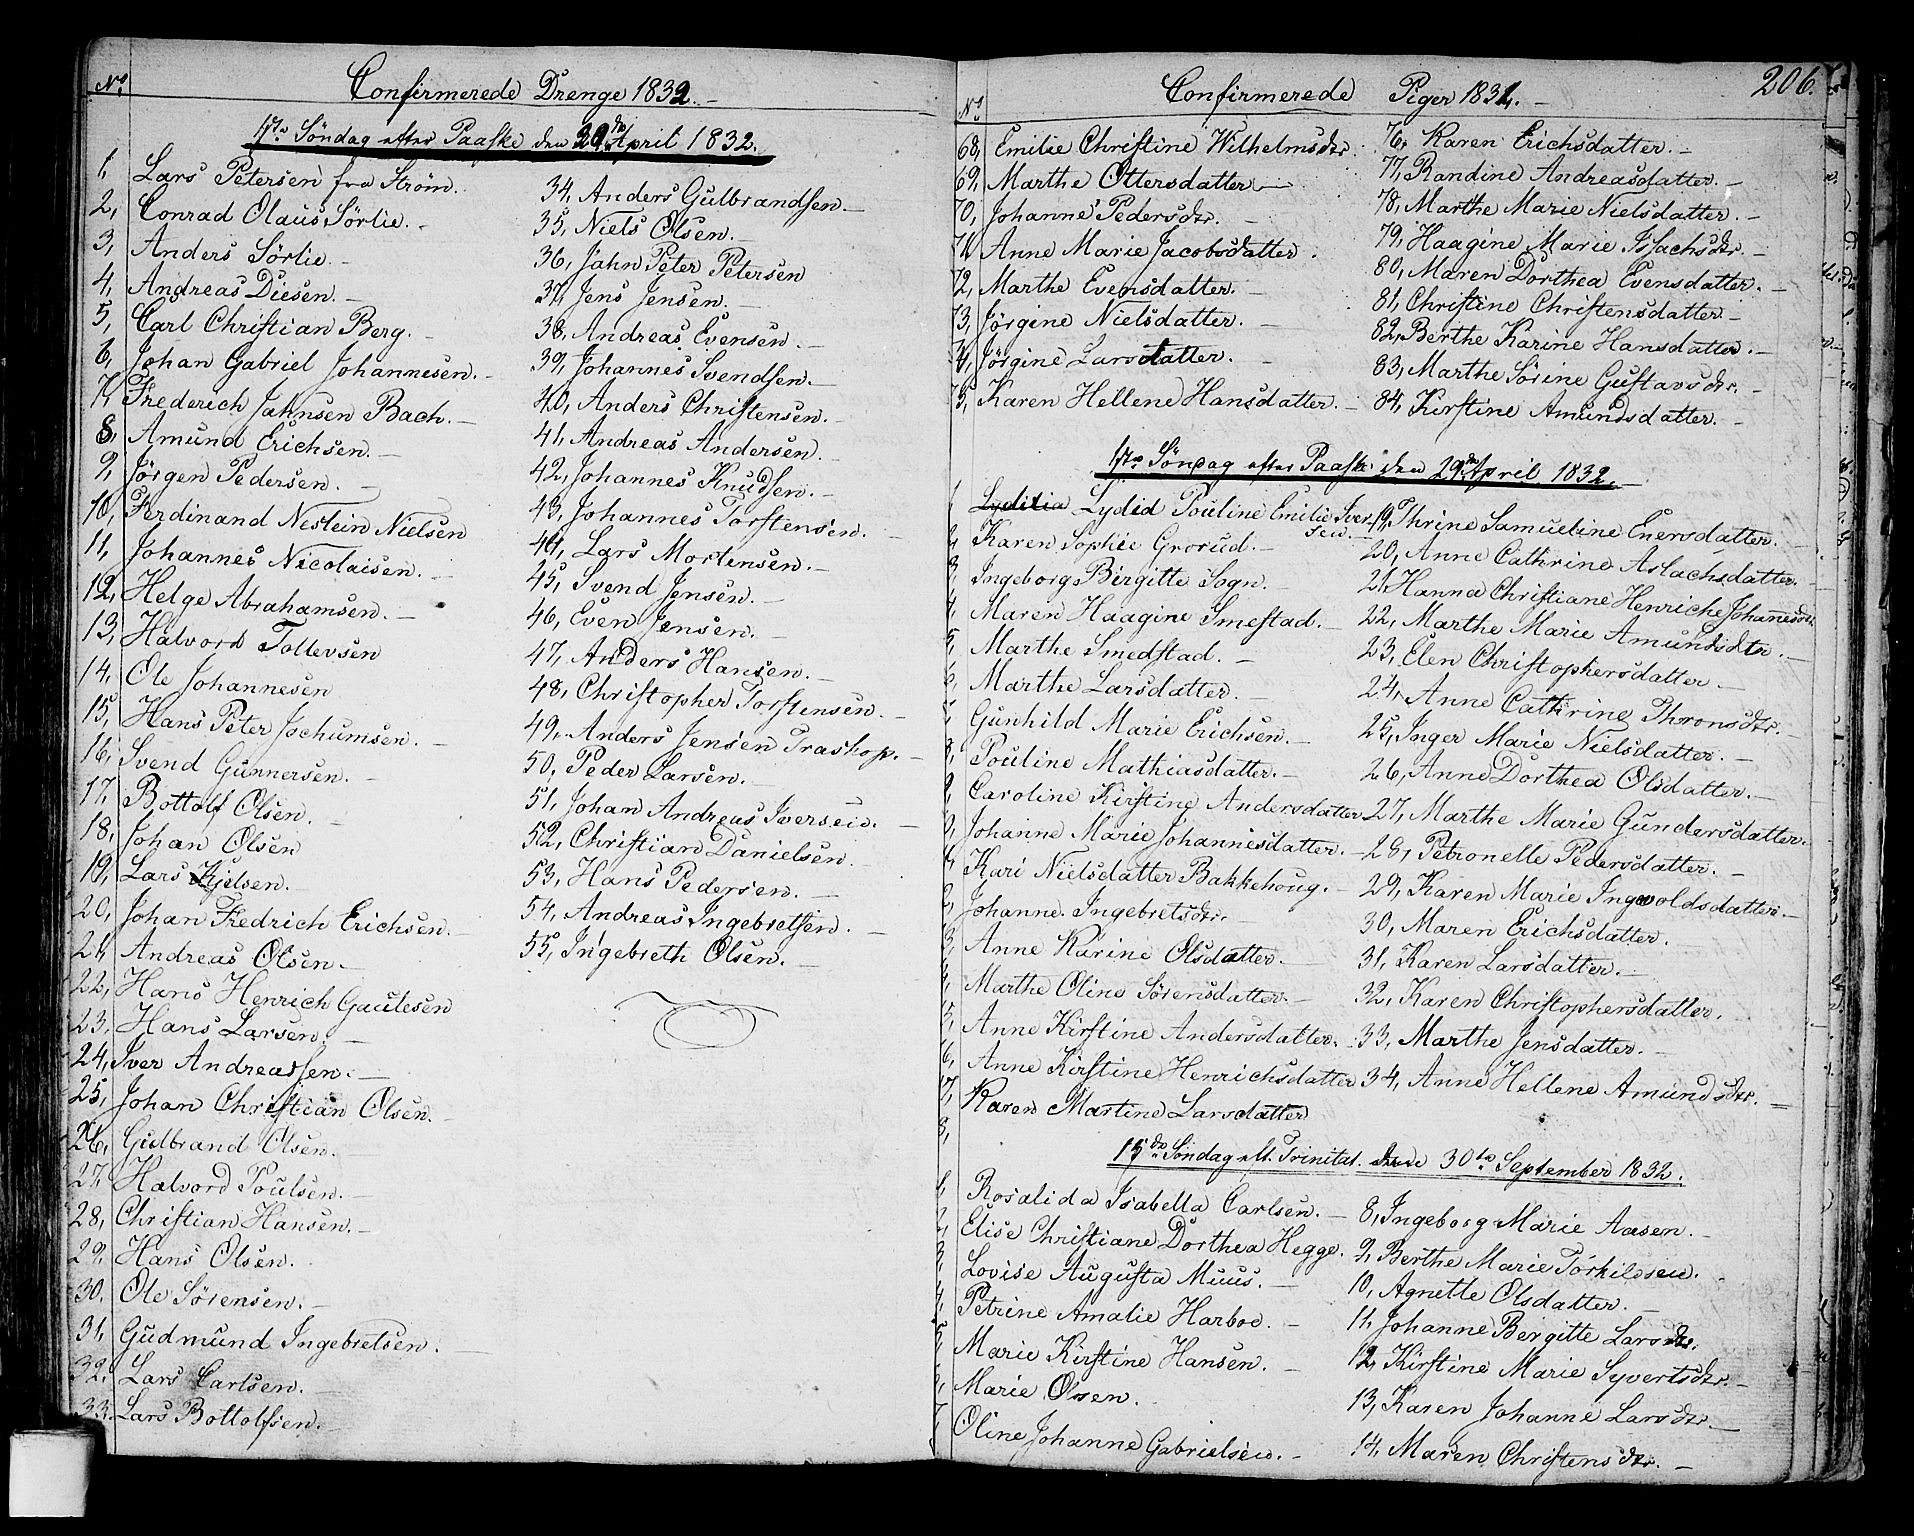 No. Confirmerede Drenge 1832.-
1ste Söndag efter Paaske den 29de April 1832.
1, Lars Petersen fra Ström.
2, Conrad Olaus Sörlie.
3, Anders Sörlie.-
4, Andreas Diesen.-
5, Carl Christian Berg.-
6, Johan Gabriel Johannesen.-
7, Frederich Jahnsen Bach.-
8, Amund Erichsen.-
9, Jörgen Pedersen.-
10, Ferdinand Neslein Nielsen
11, Johannes Nicolaisen.-
12, Helge Abrahamsen.-
13, Halvord Tollevsen
14, Ole Johannesen
15, Hans Peter Jochumsen.-
16, Svend Gunnersen.-
17, Bottolf Olsen.-
18, Johan Olsen
19, Lars Kjelsen.-
20, Johan Fredrich Erichsen.-
21, Andreas Olsen.-
22, Hans Henrich Gaulesen
23, Hans Larsen.-
24, Iver Andreassen.-
25, Johan Christian Olsen.-
26, Gulbrand Olsen.-
27, Halvord Poulsen.-
28, Christian Hansen.-
29, Hans Olsen.
30, Ole Sörensen.-
31, Gudmund Ingebretsen.-
32, Lars Carlsen.-
33, Lars Bottolfsen.-
34, Anders Gulbrandsen.-
35, Niels Olsen.-
36, Jahn Peter Petersen
37, Jens Jensen.-
38, Andreas Evensen.-
39, Johannes Svendsen.-
40, Anders Christensen.-
41, Andreas Andersen.-
42, Johannes Knudsen.-
43, Johannes Torstensen.-
44, Lars Mortensen.-
45, Svend Jensen.-
46, Even Jensen.-
47, Anders Hansen.-
48, Christopher Torstensen.-
49, Anders Jensen Traskop.-
50, Peder Larsen.-
51, Johan Andreas Iversen.-
52, Christian Danielsen.
53, Hans Pedersen.-
54, Andreas Ingebretsen.-
55, Ingebreth Olsen.-
206.
No. Confirmerede Piger 1831.-
68, Emilie Christine Wilhelmsdtr.
69, Marthe Ottersdatter.-
70, Johanne Pedersdtr.-
71, Anne Marie Jacobsdatter.
72, Marthe Evensdatter.-
73, Jörgine Nielsdatter.-
4, Jörgine Larsdatter.-
5, Karen Hellene Hansdatter.-
76, Karen Erichsdatter.-
77, Randine Andreasdatter.-
78, Marthe Marie Nielsdatter.-
79, Haagine Marie Issachsdtr.-
80, Maren Dorthea Evensdatter.-
81, Christine Christensdatter.-
82, Berthe Karine Hansdatter.-
83, Marthe Sörine Gustavsdtr.-
84, Kirstine Amundsdatter.-
1ste Söndag efter Paaske den 29de April 1832.-
1 Lydilia Lydid Pouline Emilie Iversen.-
2, Karen Sophie Grorud.-
3, Ingeborg Birgitte Sogn.-
4, Maren Haagine Smestad.-
5, Marthe Smedstad.-
6, Marthe Larsdatter.-
7, Gunhild Marie Erichsen.-
8, Pouline Mathiasdatter.-
9, Caroline Kirstine Andersdatter
0, Johanne Marie Johannesdatter.-
1, Kari Nielsdatter Bakkehoug.-
2, Johanne Ingebretsdtr.-
3, Anne Karine Olsdatter.-
4, Marthe Oline Sörensdatter.-
5, Anne Kirstine Andersdatter.
6, Anne Kirstine Henrichsdatter
7, Karen Martine Larsdatter
8,
19, Thrine Samueline Enersdatter.-
20, Anne Cathrine Aslachsdatter.-
21, Hanna Christiane Henriche Johannesdtr.
22, Marthe Marie Amundsdtr.-
23, Elen Christophersdatter.-
24, Anne Cathrine Thronsdtr.-
25, Inger Marie Nielsdatter.-
26, Anne Dorthea Olsdatter.-
27, Marthe Marie Gundersdatter.
28, Petronelle Pedersdatter.-
29, Karen Marie Ingwoldsdatter.-
30, Maren Erichsdatter.
31, Karen Larsdatter.-
32, Karen Christophersdatter.
33, Marthe Jensdatter.-
34, Anne Hellene Amundsdtr.-
15de Söndag eft. Trinitat. den 30te September 1832.
1, Rosalida Isabella Carlsen.-
2, Elise Christiane Dorthea Hegge.
3, Lovise Augusta Muus.-
4, Petrine Amalie Harboe.-
5, Marie Kirstine Hansen.-
6, Marie Olsen.
7, Oline Johanne Gabrielsen.-
8, Ingeborg Marie Aasen.-
9, Berthe Marie Törkildsen.
10, Agnette Olsdatter.-
11, Johanne Bergitte Larsdtr.
12, Kirstine Marie Syvertsdtr.-
13, Karen Johanne Larsdtr.-
14, Maren Christensdtr.-